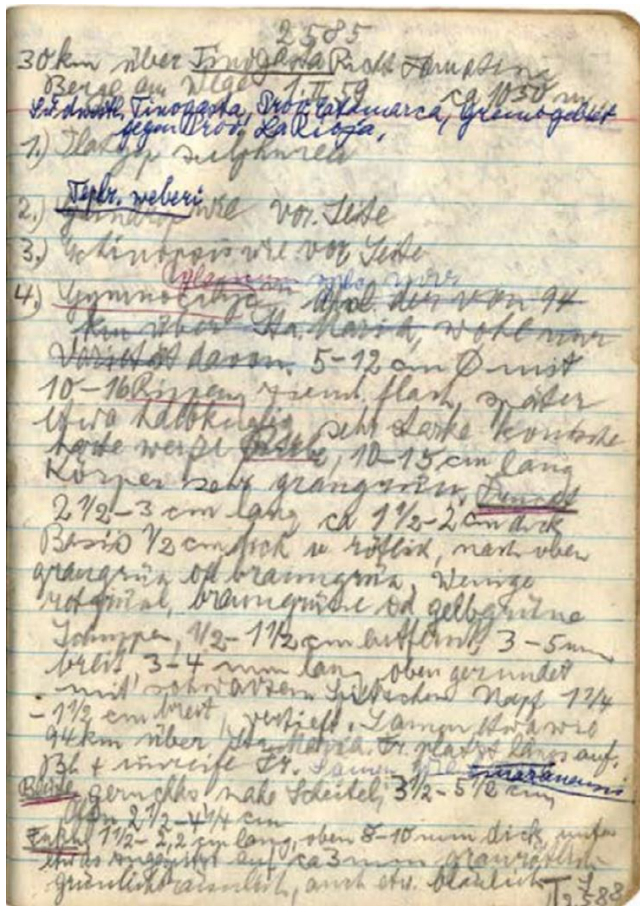 2585
30 km über Tinogasta Richt. Famatina
Berge am Wege 1.II.59 ca 1050 m
Südwestl. Tinogasta, Prov. Catamarca, Grenzgebiet
gegen Prov. La Rioja,
1.)
Tephr. weberi
2.) wie vor. Seite
3.) wie vor Seite
4.) Gymnocalyc. der von 94
km über Sta. Maria, wohl nur
Varietät davon. 5-12 cm Ø mit
10-16 Rippen, zieml. flach, später
etwa halbkugelig, sehr starke konische
harte weiße Rübe, 10-15 cm lang
Körper sehr graugrün, Frucht
2 1/2-3 cm lang ca 1 1/2-2 cm dick
Basis 1/2 cm dick u rötlich, nach oben
graugrün od braungrün, Wenige
rotgrüne, braungrüne od gelbgrüne
Schuppen, 1/2-1 1/2 cm entfernt 3-5 mm
breit 3-4 mm lang oben gerundet
mit schwarzem Spitzchen Napf 1 1/4
- 1 1/2 cm breit, vertieft. Samen etwa wie
94 km über Sta. Maria. Fr. platzt längs auf.
Bl + unreife Fr. Samen wie
Blüte geruchlos nahe Scheitel, 3 1/2-5 1/2 cm
2 1/2-4 1/4 cm
1 1/2-2,2 cm lang, oben 8-10 mm dick, unten
etwas auf ca 3 mm
grünlich auch etw. bläulich